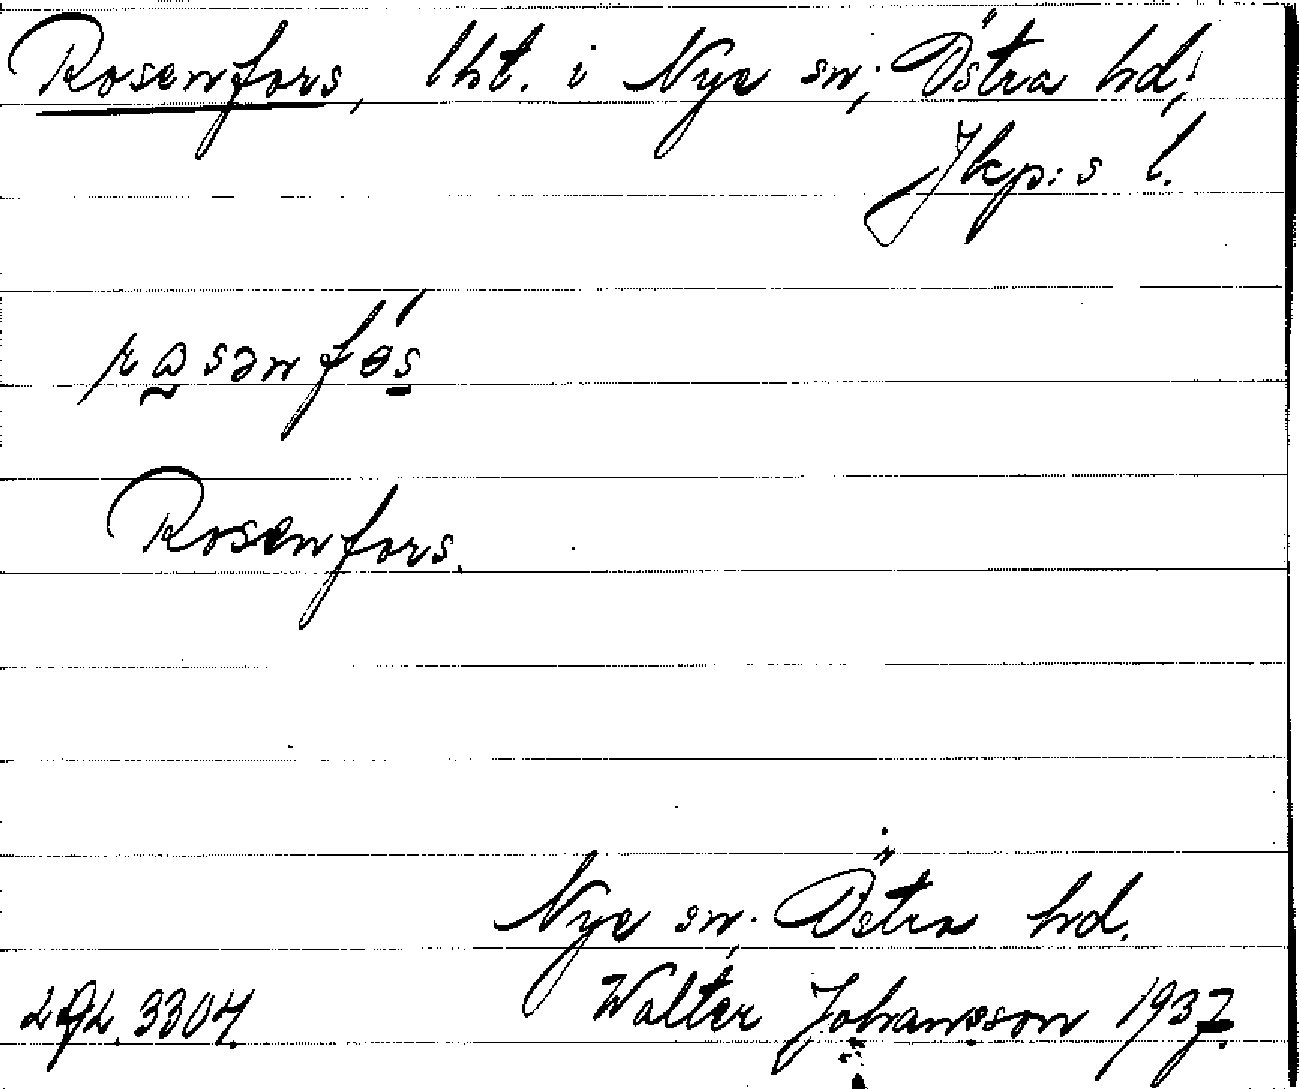 Rosenfors, lht. i Nye sn, Östra hd,
Jkp:s l.
Rosenfors.
Nye sn, Östra hd.
Walter Johansson 1937.
3304.